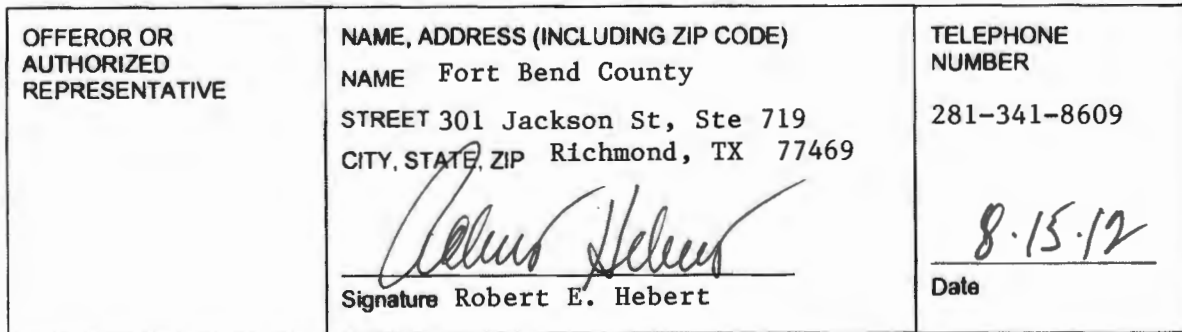 OFFEROR OR
AUTHORIZED
REPRESENTATIVE
NAME, ADDRESS (INCLUDING ZIP CODE)
NAME Fort Bend County
STREET 301 Jackson St, Ste 719
CITY, STATE, ZIP Richmond, TX 77469
Robert Hebert
Signature Robert E. Hebert
TELEPHONE
NUMBER
281-341-8609
8.15.12
Date